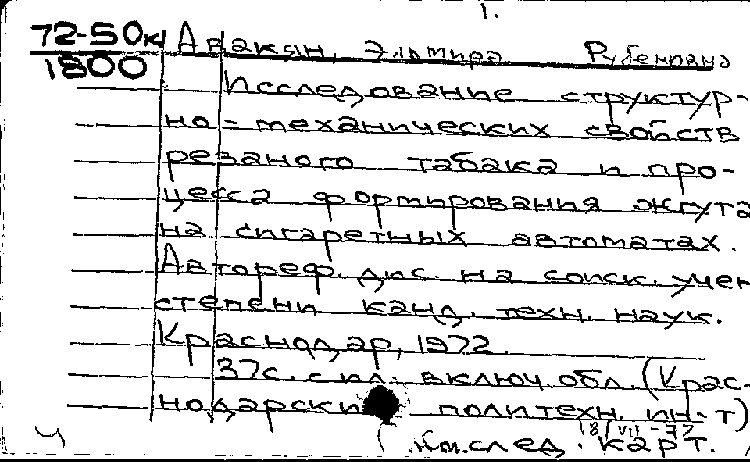 1.
72-50к Авакян, Эльмира Рубеновна
1800
Исследование структур-
но-механических свойств
резаного табака и про-
цесса формирования жгута
на сигаретных автоматах.
Автореф. дис. на соиск. учен
степени канд. техн. наук.
Краснодар, 1972.
37с. с ил. включ. обл. (Крас-
нодарский политехн. ин-т)
18/VII-72
(см. след. карт.